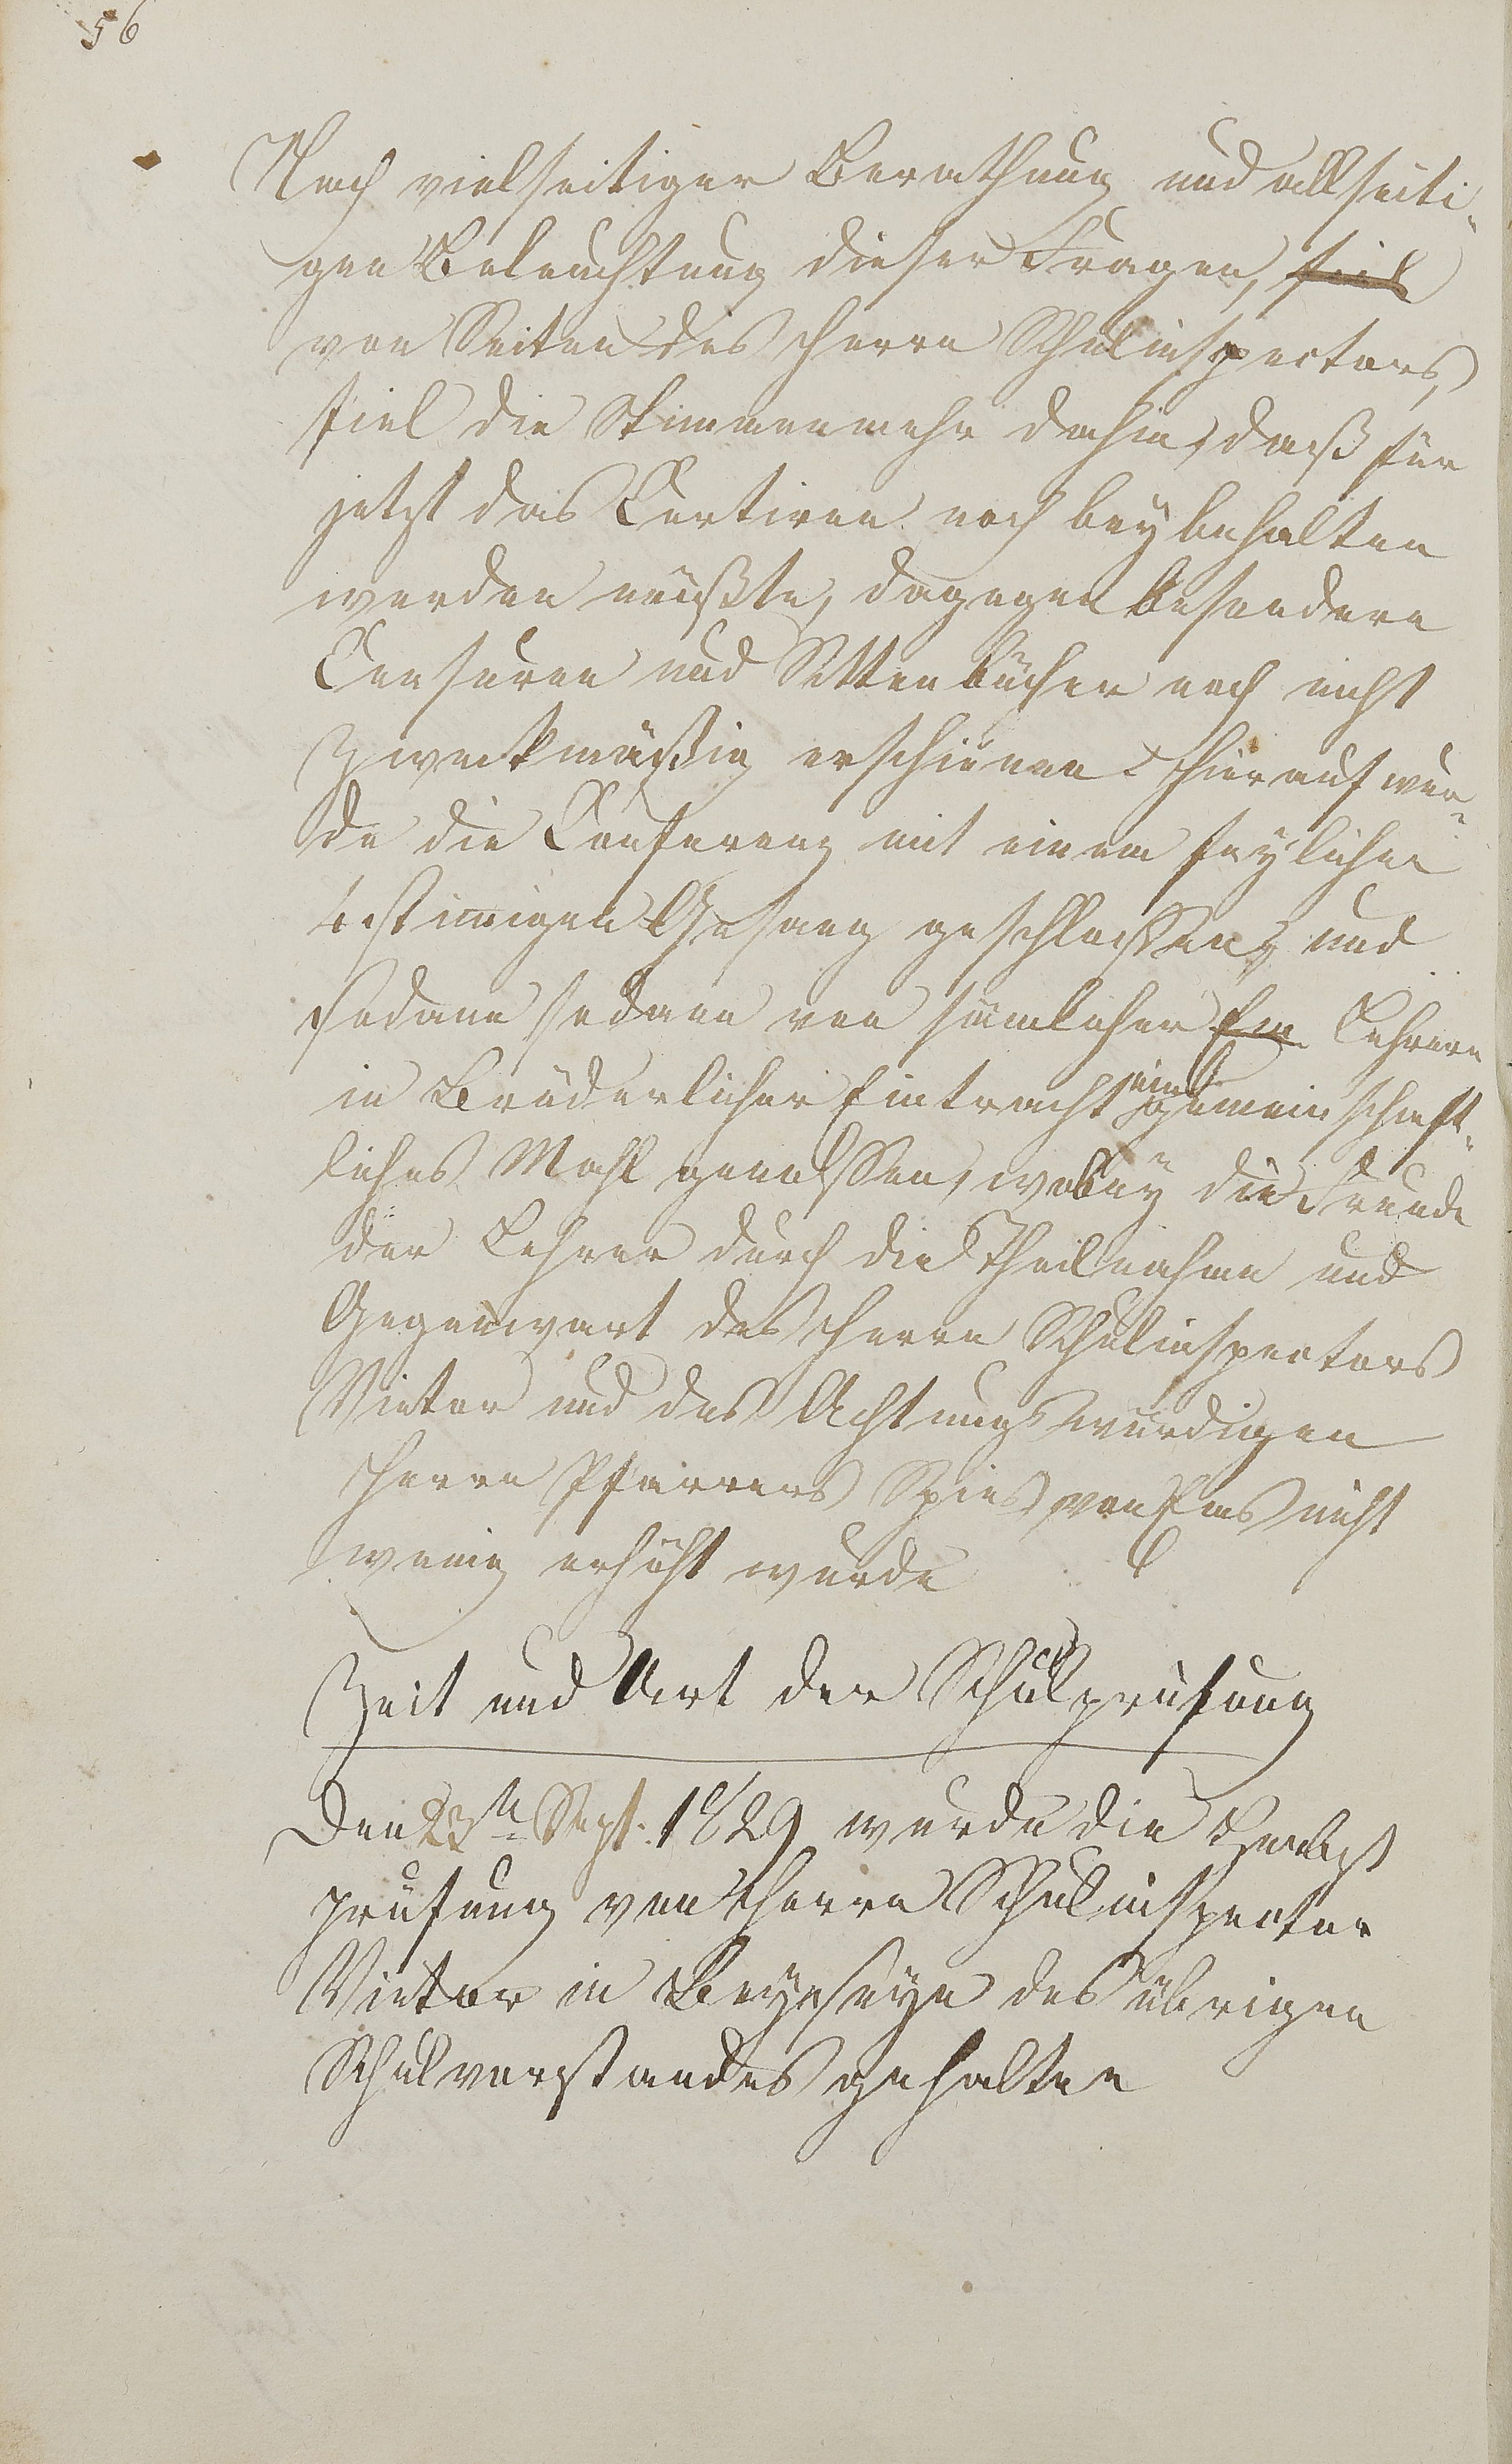 56
Nach vielseitiger Berathung und allseiti-
gen Beleuchtung dieser Fragen, fiel
von Seiten des Herrn Schulinspectors,
fiel die Stimmenmehr dahin, daß für
jetzt das Certiren noch beybehalten
werden müßte, dagegen besondere
Censuren und Sittenbücher noch nicht
zweckmäßig erschienen. Hierauf wur-
de die Conferenz mit einem feylichen
4stimigen Gesang geschlossen, und
sodann sodann von sämlicher Em Lehrern
in Brüderlicher Eintracht ein gemeinschaft-
liches Mahl genossen, wobey die Freude
der Lehrer durch die Theilnahme und
Gegenwart des Herrn Schulinspectors
Vietor und des Achtungswürdigen
Herrn Pfarrers Spies von Ems nicht
wenig erhöht wurde
Zeit und Art der Schulprüfung
Den 23tn Sept. 1829 wurde die Herbst
prüfung von Herrn Schulinspector
Vietor in Beyseyn des übrigen
Schulvorstandes gehalten